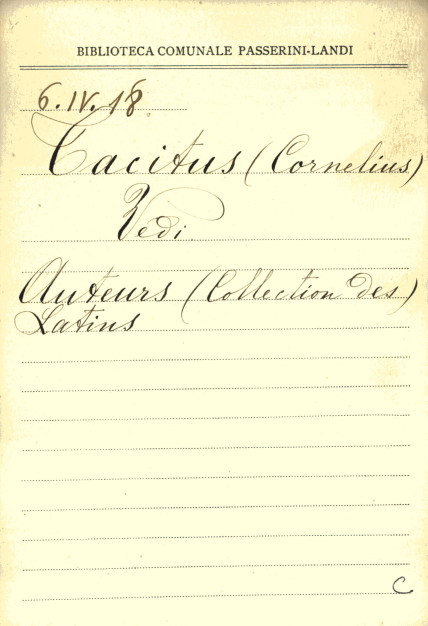 BIBLIOTECA COMUNALE PASSERINI-LANDI
6.IV.18
Tacitus (Cornelius)
Vedi
Auteurs (Collection des)
Latins
C